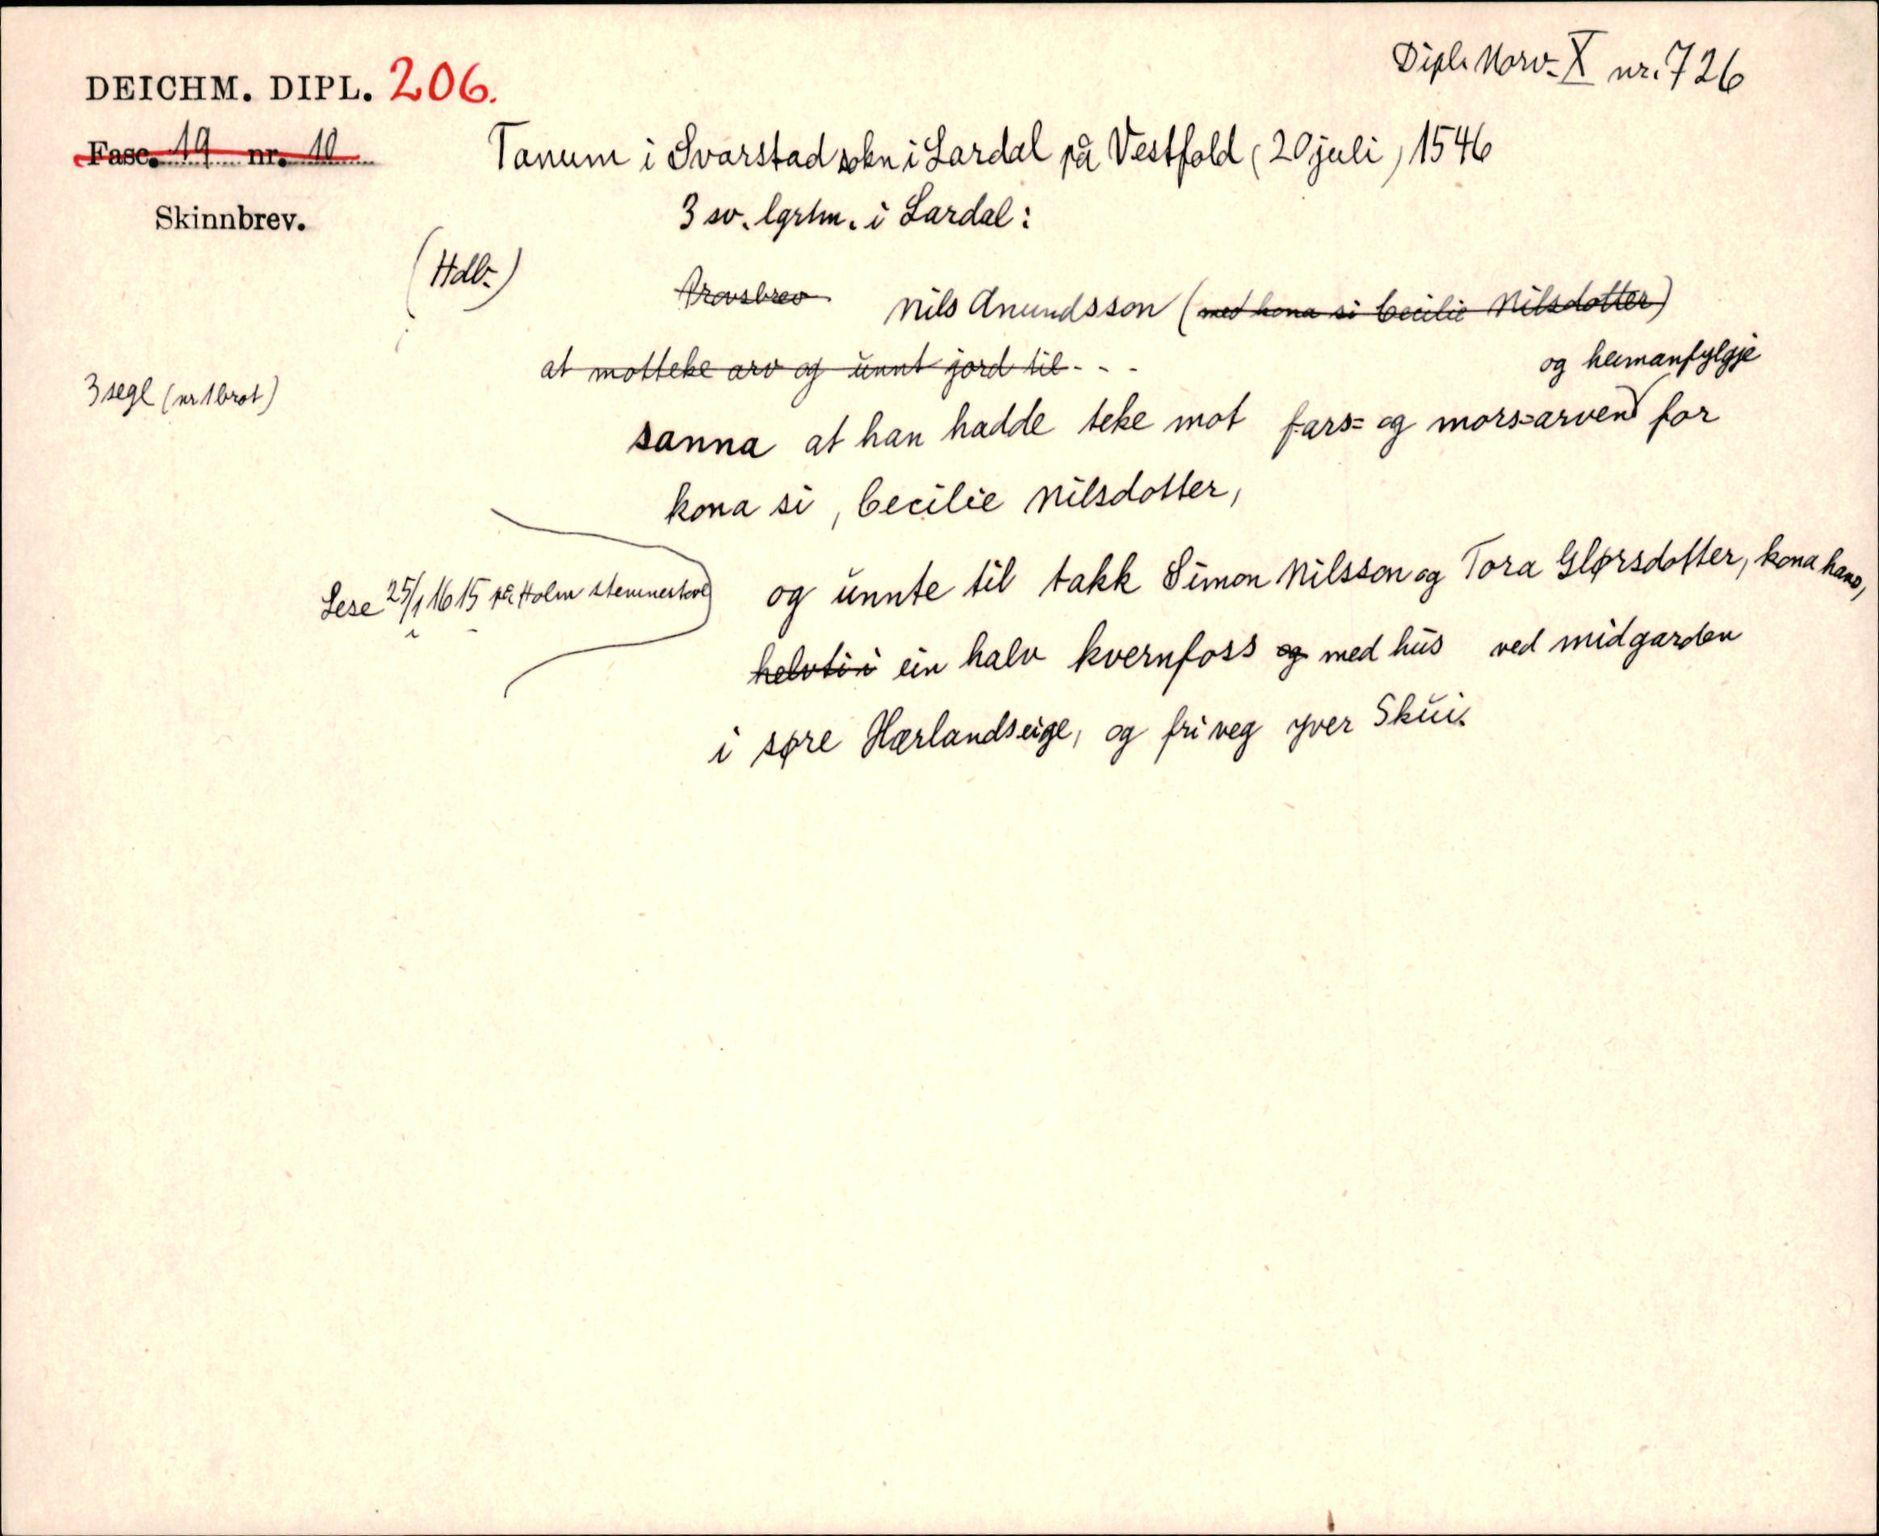 DEICHM. DIPL. 206.
Dipl. Norv. X nr. 726
Fasc. 19 nr. 10
Tanum i Svarstad sokn i Lardal på Vestfold (20 juli) 1546
Skinnbrev.
3 sv. lgrtm. i Lardal:
(Hdb.)
Arvsbrev Nils Anundsson (med kona si Cecilie Nilsdotter)
at motteke arv og unnt jord til - - -
og heimanfylgje
3 segl (nr 1 brot)
sanna at han hadde teke mot fars- og mors-arven for
kona si, Cecilie Nilsdotter,
og unnte til takk Simon Nilsson og Tora Glørsdotter, kona hans,
Lese 25/1 1615 på Holm stemnestove
helvti i ein halv kvernfoss og med hus ved midgarden
i søre Hærlandseige, og fri veg yver Skui.